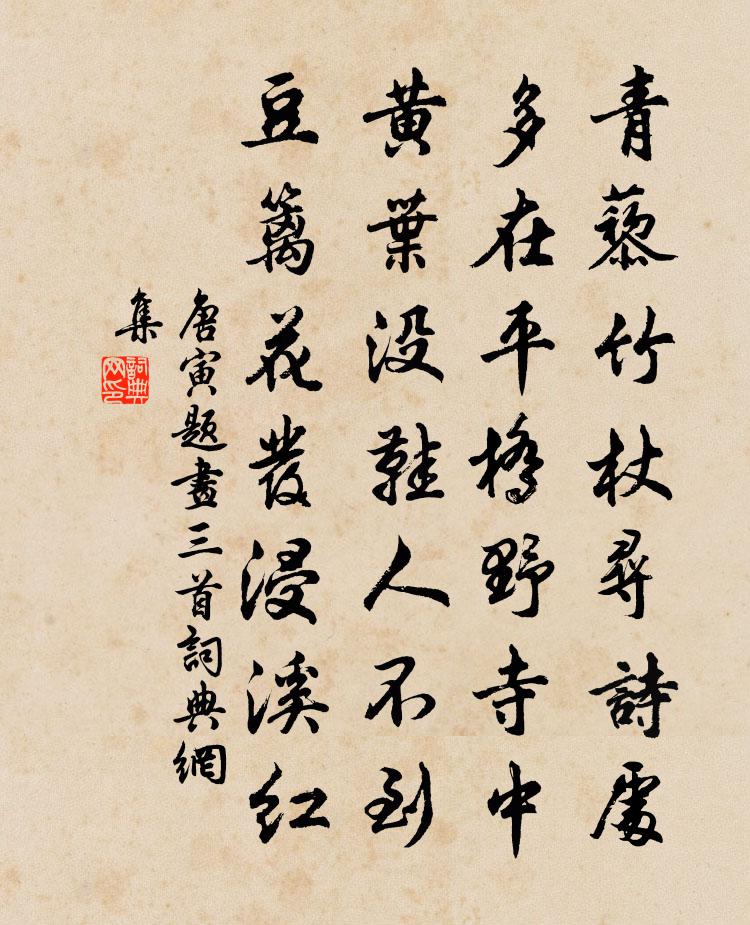 青藜竹杖尋詩處
多在平橋野寺中
黃葉没鞋人不到
豆籬花發浸溪紅
唐寅題畫三首詞典網
集
詞典
网印